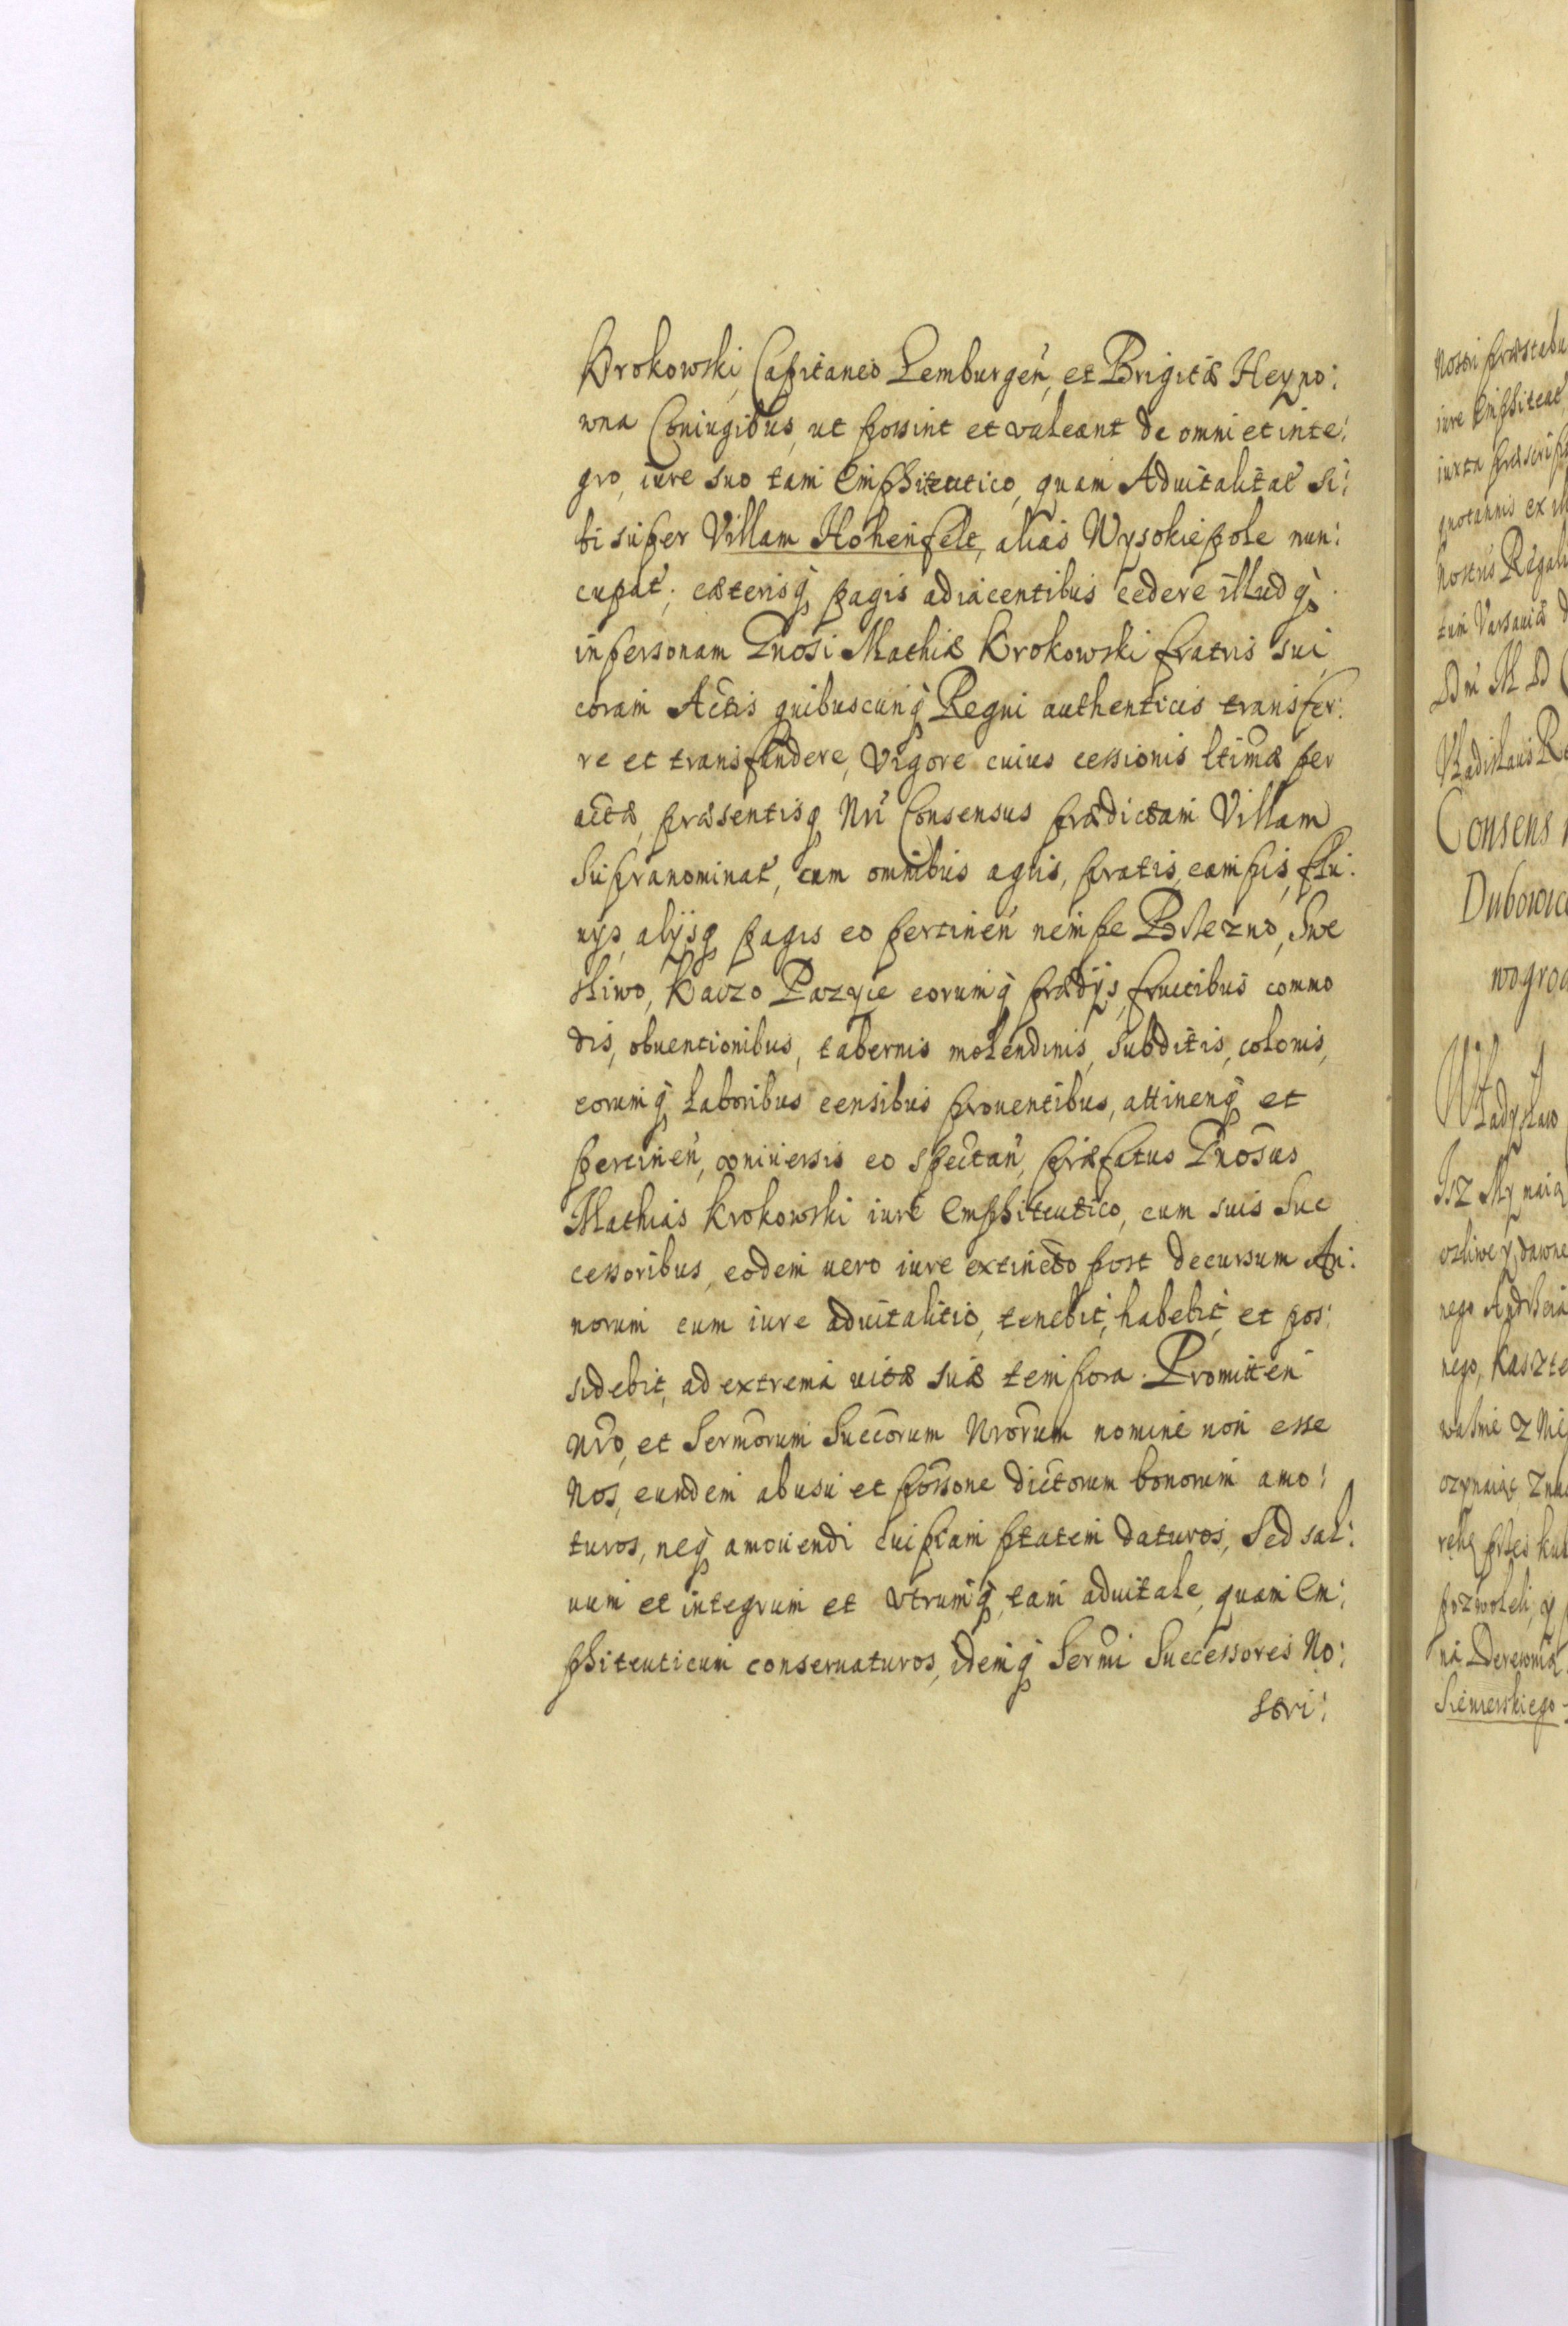 Krokowski, Capitaneo Lemburgeń, et Brigitæ Heyno:
wna Coniugibus, ut possint et valeant de omni et inte:
gro, iure suo tam Emphiteutico, quam Aduitalitat̃ si:
bi super Villam Hohenfelt, alias Wysokiepole nun:
cupat̃; cæterisq̀ pagis adiacentibus cedere illudq̀
in personam Gnosi Mathiæ Krokowski fratris sui,
coram Actis quibuscunq̀ Regni authenticis transfer:
re et transfundere, Vigore cuius cessionis ltimæ per
actæ, præsentisq̀ Nri Consensus prædictam Villam
supranominat̃, cum omnibus agris, pratis, campis, flu:
uijs, alijsq̀ pagis eo pertineń nempe
eorumq̀ prædijs, fructibus commo
dis, obuentionibus, tabernis molendinis, subditis, colonis,
eorumq̀ laboribus censibus prouentibus, attinenq̀ et
pertineń, vniuersis eo spectań, præfatus Gnosus
Mathias Krokowski iure Emphiteutico, cum suis Suc
cessoribus, eodem uero iure extincto post decursum An:
norum eum iure aduitalitio, tenebit, habebit, et pos:
sidebit, ad extrema uitæ suæ tempora. Promitteń
Nro, et Sermorum Succorum Nrorum nomine non esse
Nos, eundem ab usu et possone dictorum bonorum amo:
turos, neq̀ amouendi cuipiam ptatem daturos, Sed sal:
uum et integrum et vtrumq̀, tam aduitale, quam Em:
phiteuticum conseruaturos, idemq̀ Sermi Successores No:
stri:
Nostri præstabu
iure Emphiteut
iuxta præscrip
quotannis ex
Nostris Regali
tum Varsauiæ
Vladislaus Re
Consens
Dubowic
wogrod
Władysław
Isz My maią
nego
nego, Kaszte
pozwoleli, y
na Derewnią
Sieniawskiego